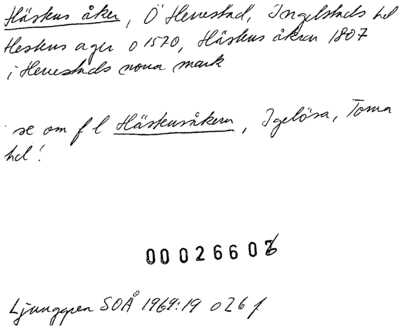 Häskus åker, Ö Herrestad, Ingelstads hd
Heskus ager o 1570, Häskus åkrar 1807
i Herrestads norra mark
se om f l Häskusåkern, Igelösa, Torna
hd!
00026606
Ljunggren SOÅ 1969:19 o 26 f